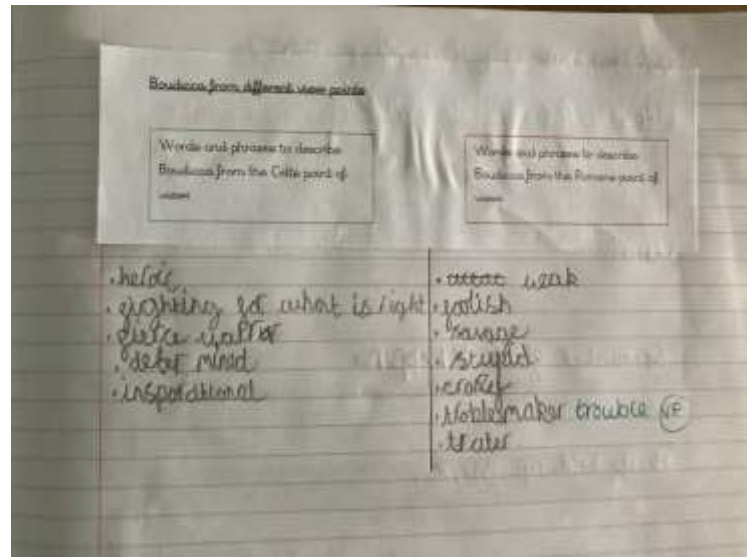 Boudicca from different view points
Words and phrases to describe
Boudicca from the Celts point of
view
Words and phrases to describe
Boudicca from the Romans point of
view
• heroic
• fighting for what is right
• fierce warrior
• deter mined
• weak
• foolish
• savage
• stupid
• troblesmaker trouble VF